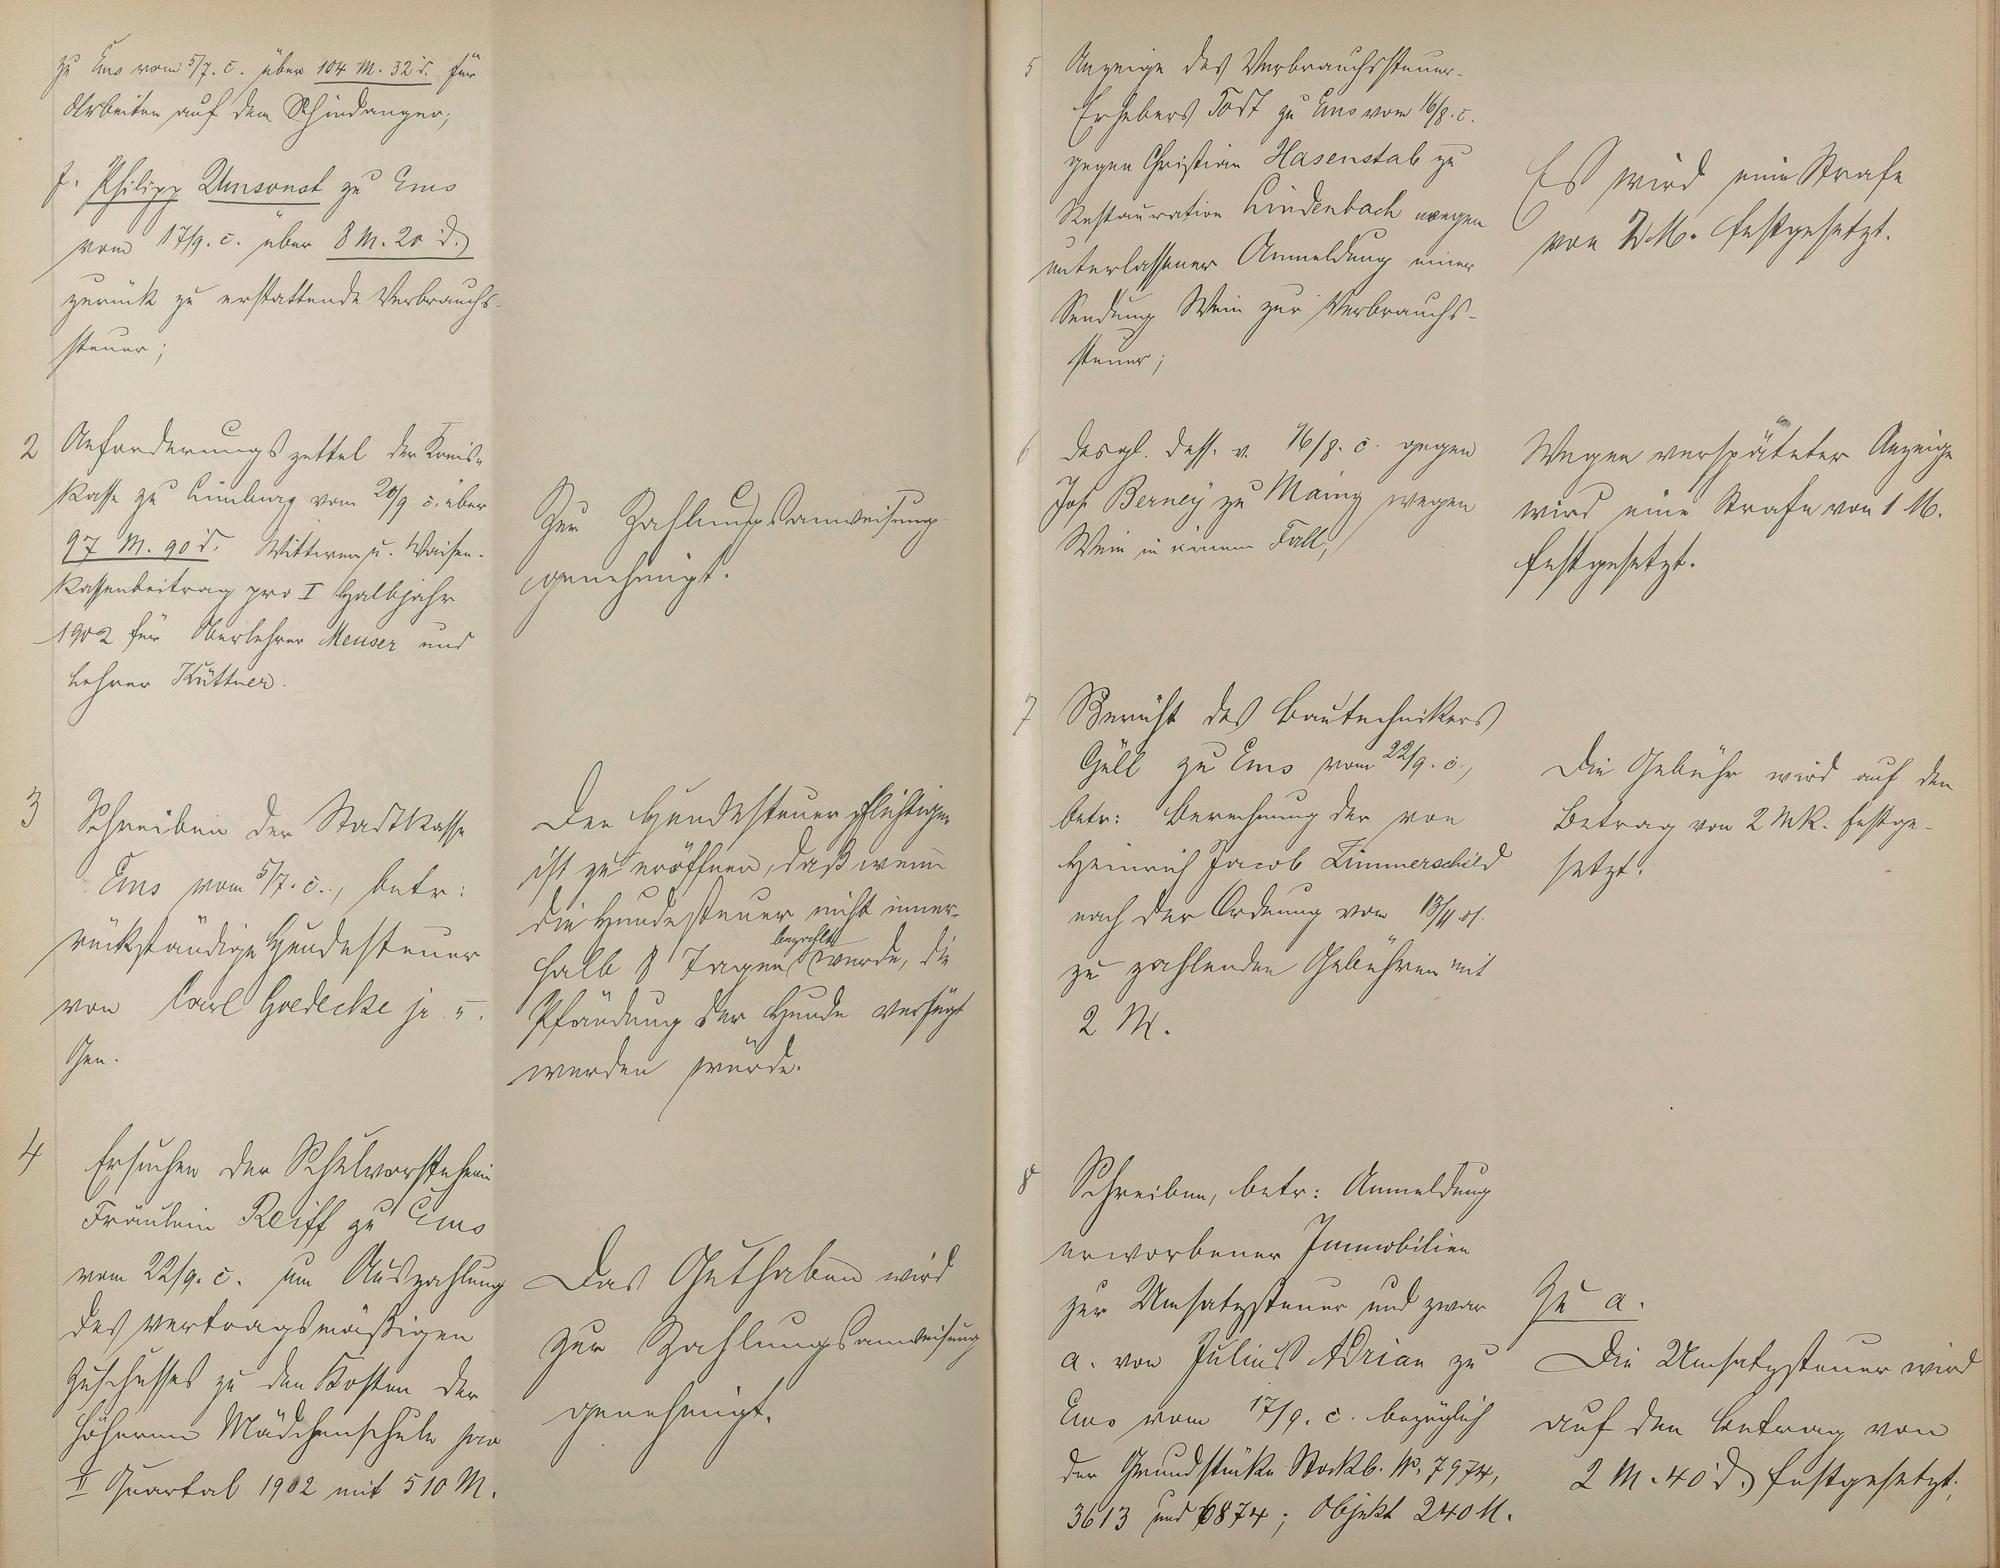 zu Ems vom 5/7. c. über 104 M. 32 d. für
Arbeiten auf dem Schindanger;
f. Philipp Umsonst zu Ems
vom 17/9. c. über 8 M. 20 d.
zurück zu erstattende Verbrauchs-
steuer;
2 Anforderungszettel der Kreis-
kasse zu Limburg vom 20/9 c. über
97 M. 90 d. Wittwen u. Waisen-
kassenbeitrag pro I Halbjahr
1902 für Oberlehrer Meuser und
Lehrer Küttner.
Zur Zahlungsanweisung
genehmigt.
3 Schreiben der Stadtkasse
Ems vom 5/7. c., betr:
rückständige Hundesteuer
von Carl Goedecke jr. u.
Sen.
Den Hundesteuerpflichtigen
ist zu eröffnen, daß wenn
die Hundesteuer nicht inner-
halb 8 Tagen bezahlt werde, die
Pfändung der Hunde verfügt
werden würde.
4 Ersuchen der Schulvorsteherin
Fräulein Reiff zu Ems
vom 22/9. c. um Auszahlung
des vertragsmäßigen
Zuschusses zu den Kosten der
höheren Mädchenschule pro
II Quartal 1902 mit 510 M.
Das Guthaben wird
zur Zahlungsanweisung
genehmigt.
5 Anzeige des Verbrauchssteuer-
Erhebers Tost zu Ems vom 16/8. c.
gegen Christian Hasenstab zu
Restauration Lindenbach wegen
unterlassener Anmeldung einer
Sendung Wein zur Verbrauchs-
steuer;
Es wird eine Strafe
von M. festgesetzt.
6 desgl. dess. v. 16/8. c. gegen
Jos. Berney zu Mainz wegen
Wein in einem Fall;
Wegen verspäteter Anzeige
wird eine Strafe von 1 M.
festgesetzt.
7 Bericht des Bautechnikers
Güll zu Ems vom 22/9. c.,
betr: Berechnung der von
Heinrich Jacob Zimmerschild
nach der Ordnung vom 13/11.01.
zu zahlenden Gebühren mit
2 M.
Die Gebühr wird auf den
Betrag von 2 Mk. festge-
setzt.
8 Schreiben, betr: Anmeldung
erworbener Immobilien
zur Umsatzsteuer und zwar
a. von Julius Adrian zu
Ems vom 17/9. c. bezüglich
der Grundstücke Stockb. No. 7974,
3613 und 6874; Objekt 240 M.
Zu a.
Die Umsatzsteuer wird
auf den Betrag von
2 M. 40 d. festgesetzt.